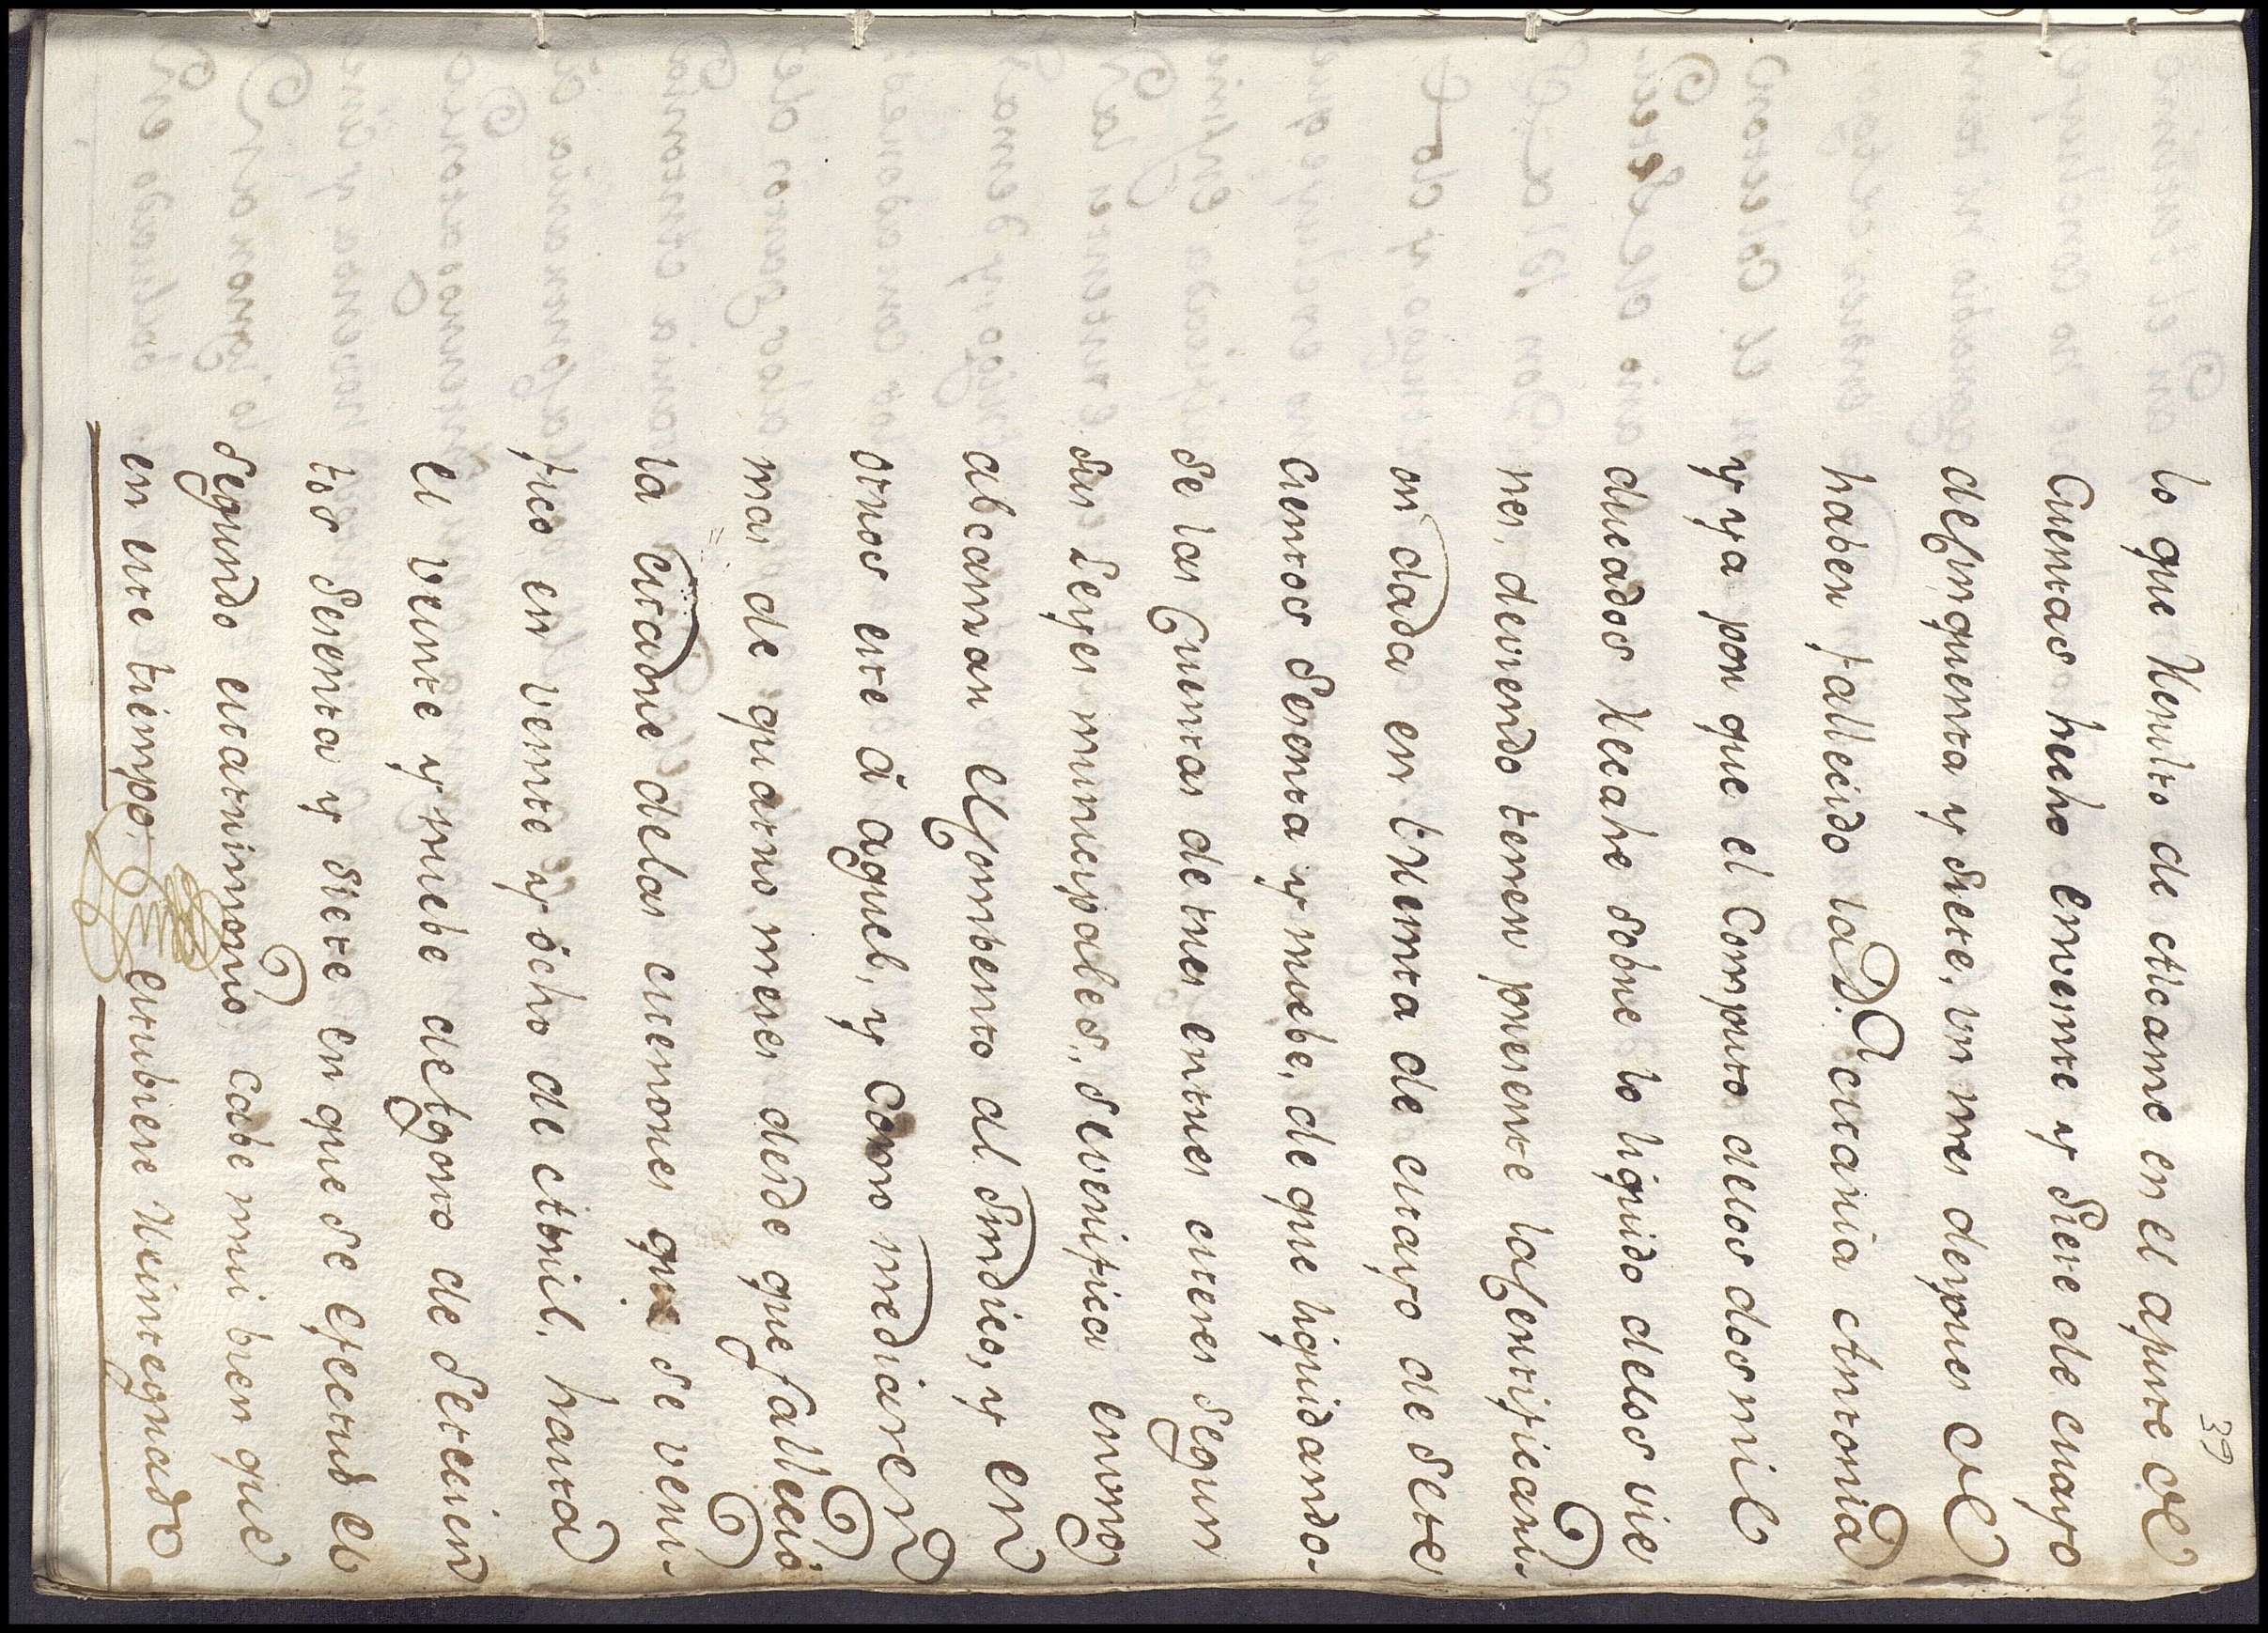 39
lo que Resulto de Alcance en el apunte de
Cuentas hecho en veinte y Siete de Mayo
de Cinquenta y Siete, un mes despues de
haber fallecido la D.ª Escxania Antonia
y ya por que el Computo de los dos mil
ducados Recahe sobre lo liquido de los vie
nes, deviendo tener presente la Zentificani-
on dada en treinta de Mayo de Sete
cientos Sesenta y nuebe, de que liquidando-
se las Cuentas de tres en tres meses segun
sus Leyes municipales, se verifica en unos
alcanzan el Combento al Sindico, y en
otros este â aquel, y como mediaren
mas de quatro meses desde que fallecio
la Madre de las menores que se veri-
fico en veinte y ôcho de Abril, hasta
el veinte y nuebe de Agosto de Setecien
tos Sesenta y Siete en que se efectuó el
Segundo Matrimonio, cabe mui bien que
en este tiempo, estubiere Reintegrado